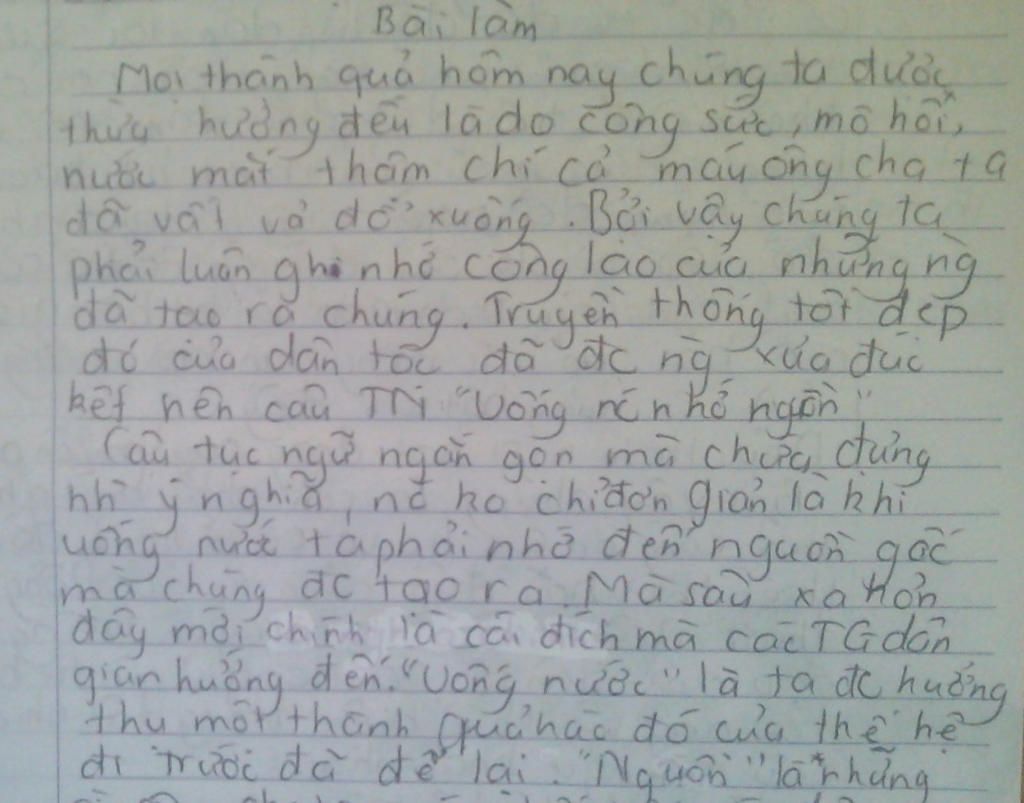 Bài làm
Mọi thành quả hôm nay chúng ta được
thừa hưởng đều là do công sức, mồ hôi,
nước mắt thậm chí cả máu ông cha ta
đã vất vả đổ xuống. Bởi vậy chúng ta
phải luôn ghi nhớ công lao của những ng
đã tạo ra chúng. Truyền thống tốt đẹp
đó của dân tộc đã đc ng xưa đúc
kết nên câu TN "Uống nc nhớ nguồn"
Câu tục ngữ ngắn gọn mà chứa đựng
nh` ý nghĩa, nó ko chỉ đơn giản là khi
uống nước ta phải nhớ đến nguồn gốc
mà chúng đc tạo ra. Mà sâu xa hơn
đây mới chính là cái đích mà các TG dân
gian hướng đến. "Uống nước" là ta đc hưởng
thụ một thành quả nào đó của thế hệ
đi trước đã để lại. "Nguồn" là những